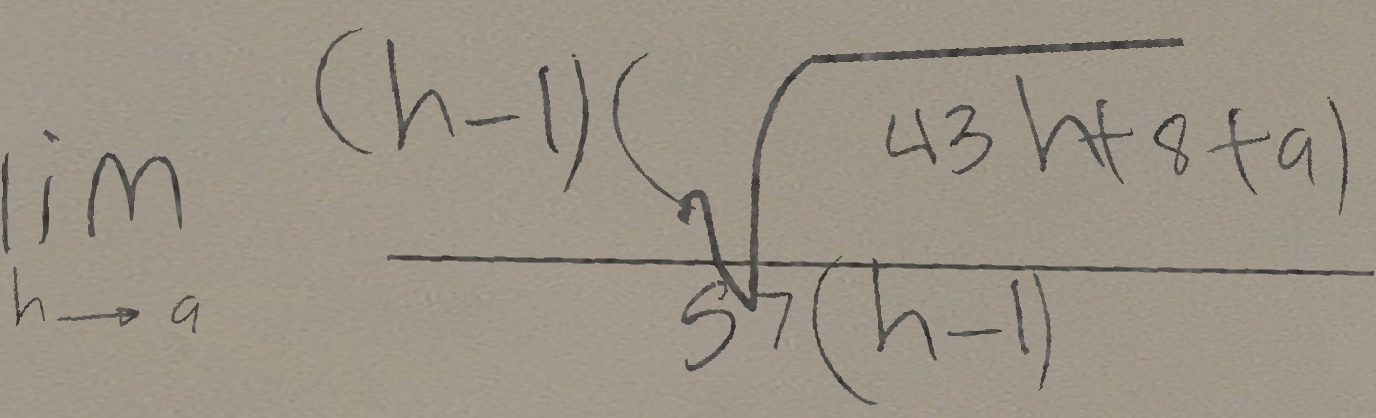 lim h→a (h-1)(√(43h+8+a)) / 57(h-1)